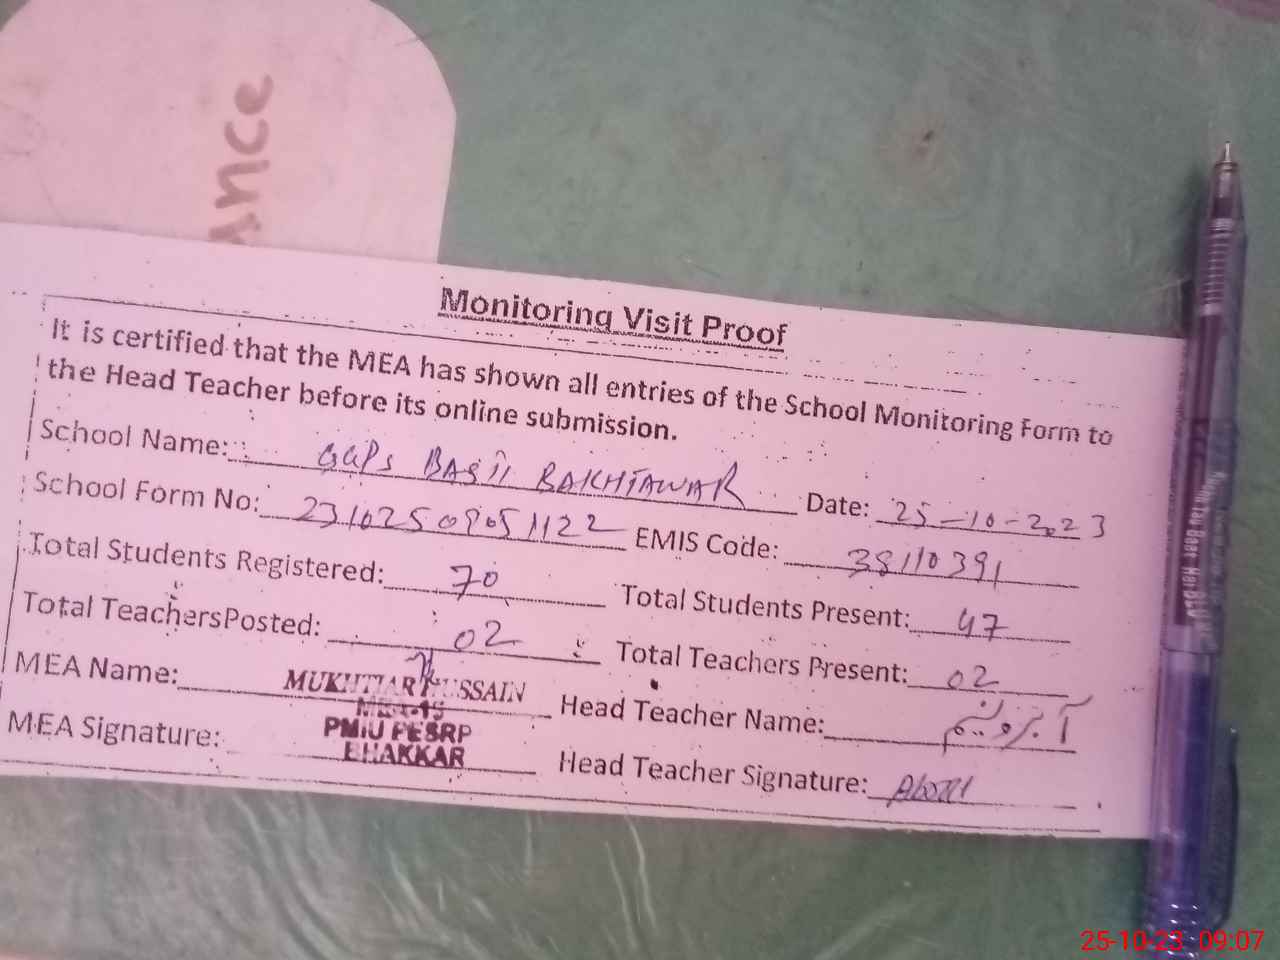 ance
Monitoring Visit Proof
It is certified that the MEA has shown all entries of the School Monitoring Form to
the Head Teacher before its online submission.
School Name: GGPS BASTI BAKHTAWAR Date: 25-10-2023
School Form No: 23102509051122 EMIS Code: 38110391
Total Students Registered: 70 Total Students Present: 47
Total TeachersPosted: 02 Total Teachers Present: 02
MEA Name: MUKHTIAR HUSSAIN Head Teacher Name:
MEA-15
PMIU PESRP
BHAKKAR
MEA Signature: Head Teacher Signature:
25-10-23 09:07